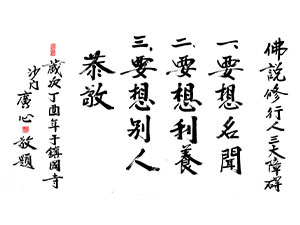 佛說修行人三大障碍
一、要想名聞
二、要想利養
三、要想别人
恭敬
歲次丁酉年于鎮國寺
沙门廣心敬題